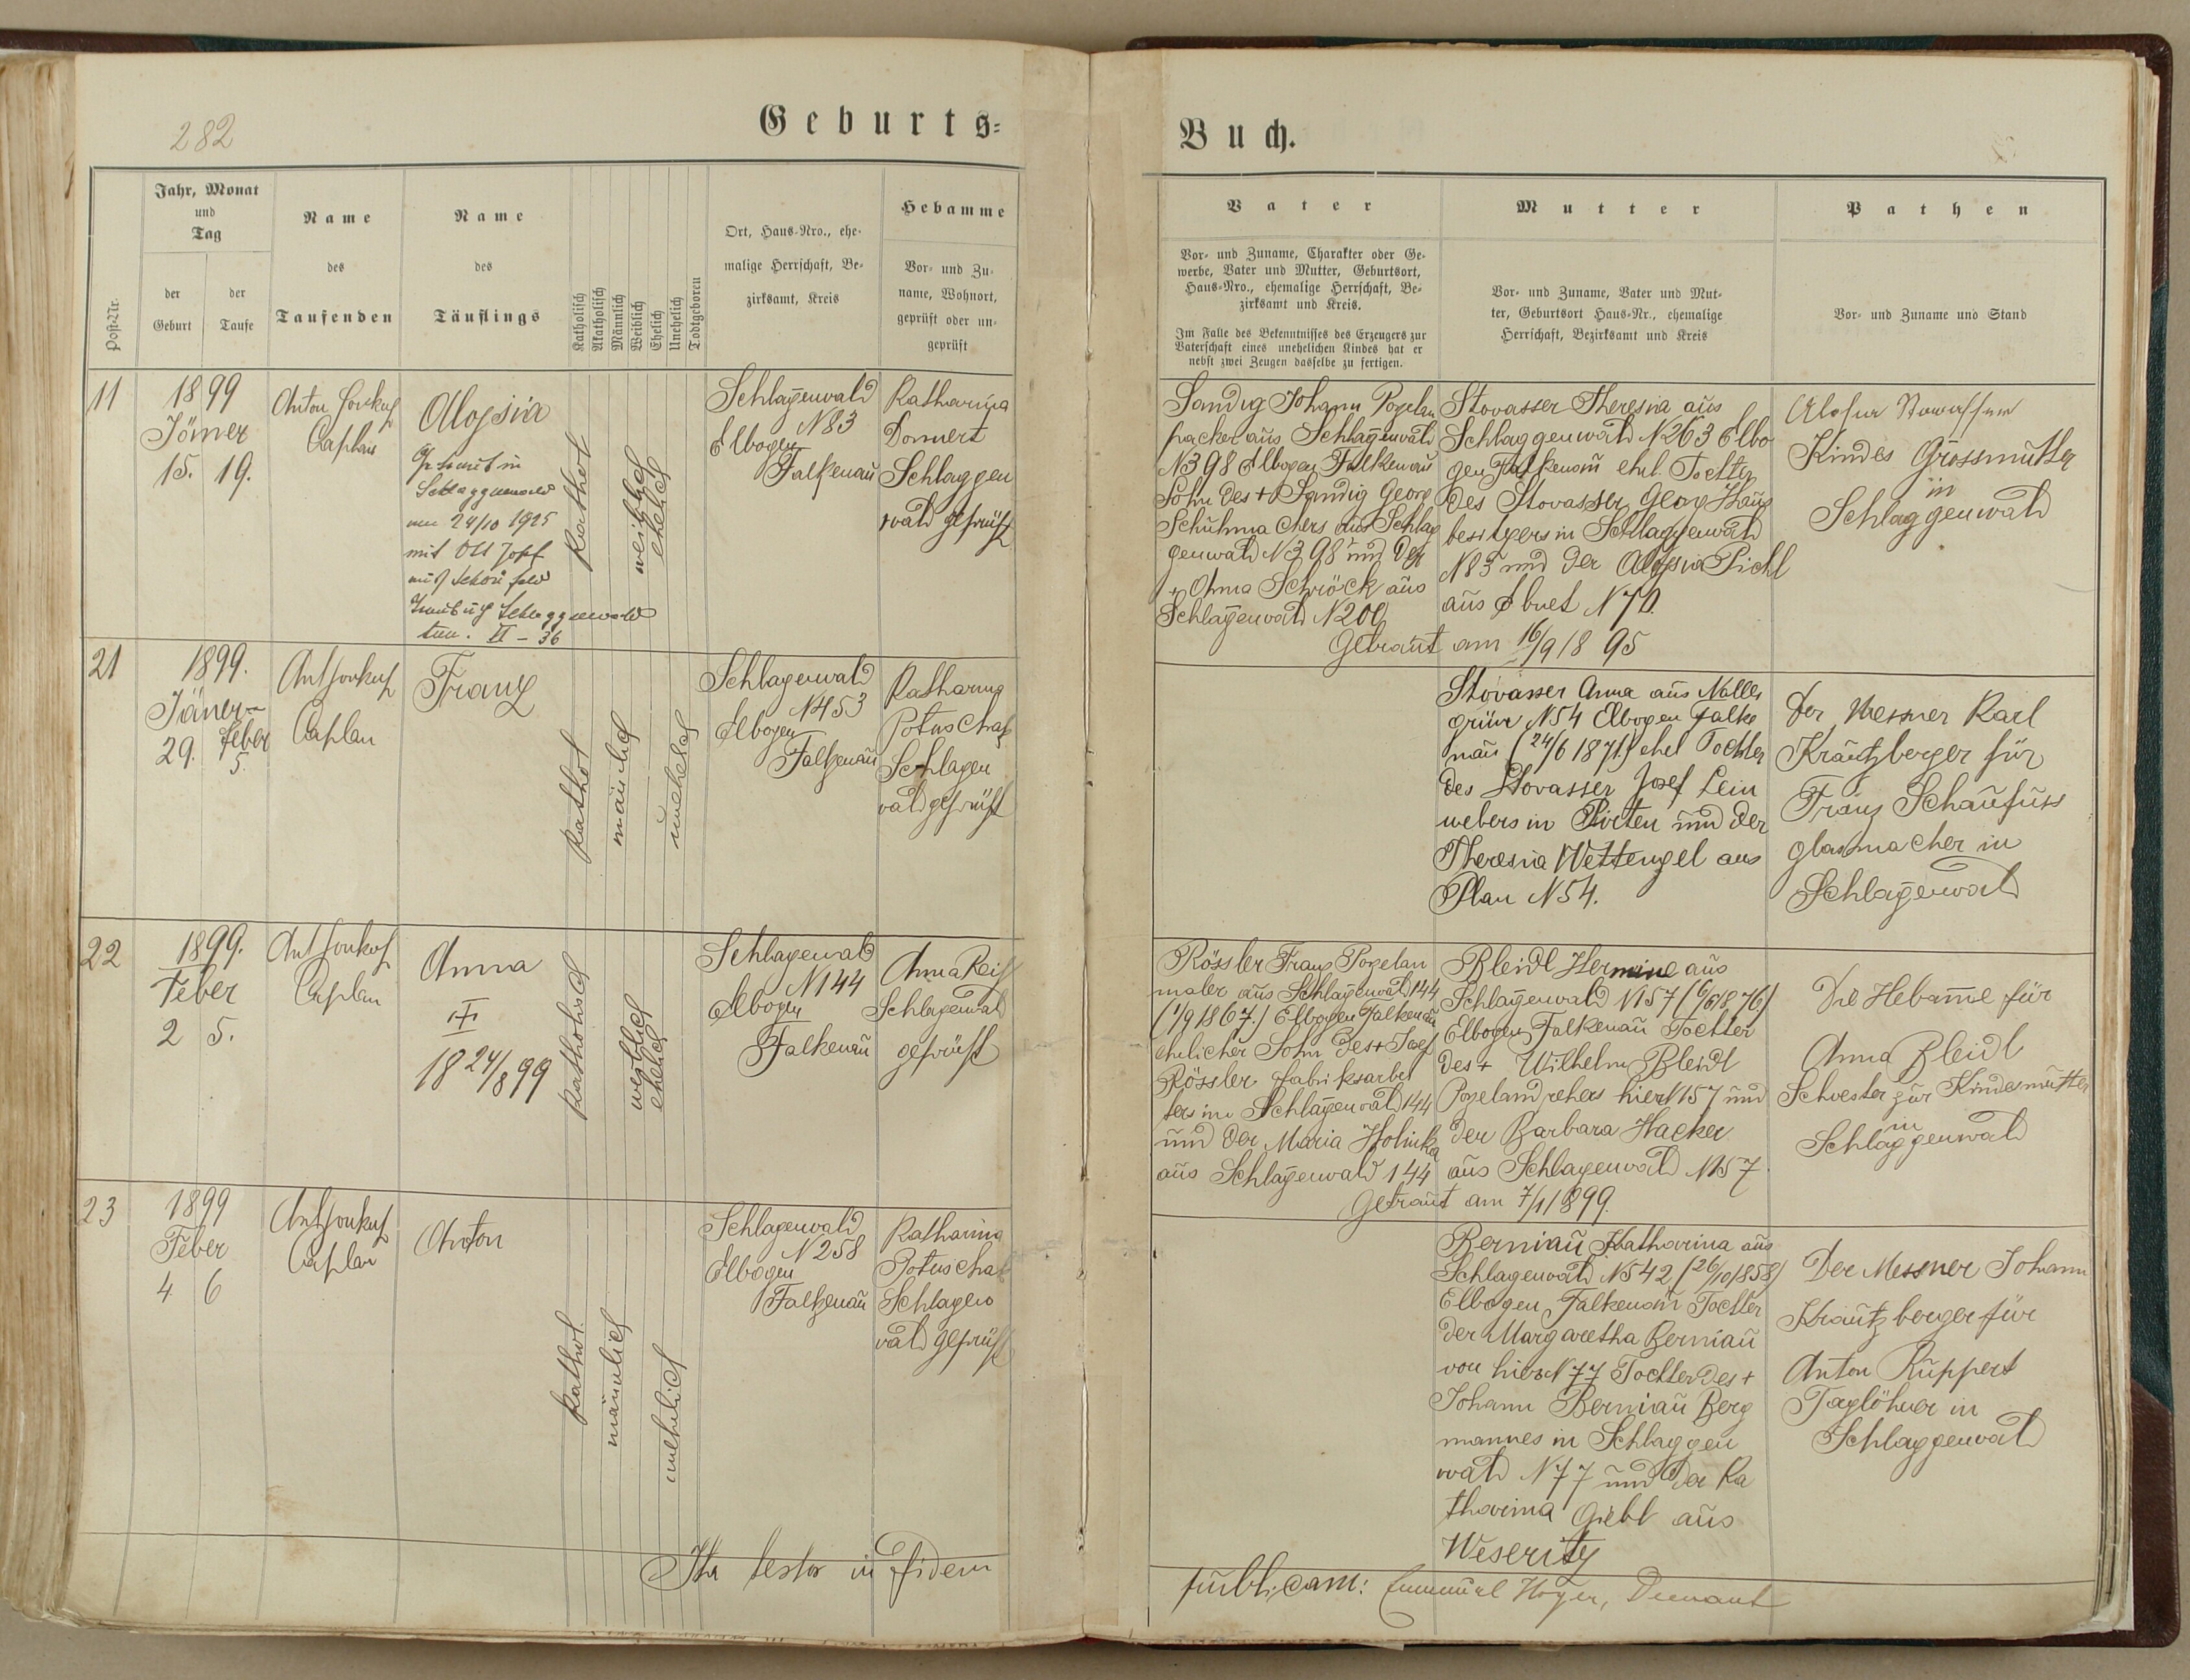 282
Geburts=
Buch.
Post-Nr.
Jahr, Monat
und
Tag
der
Geburt
der
Taufe
Name
des
Taufenden
Name
des
Täuflings
Katholisch
Akatholisch
Männlich
Weiblich
Ehelich
Unehelich
Todtgeboren
Ort, Haus-Nro., ehe-
malige Herrschaft, Be-
zirksamt, Kreis
Hebamme
Vor- und Zu-
name, Wohnort,
geprüft oder un-
geprüft
Vater
Vor- und Zuname, Charakter oder Ge-
werbe, Vater und Mutter, Geburtsort,
Haus-Nro., ehemalige Herrschaft, Be-
zirksamt und Kreis.
Im Falle des Bekenntnisses des Erzeugers zur
Vaterschaft eines unehelichen Kindes hat er
nebst zwei Zeugen dasselbe zu fertigen.
Mutter
Vor- und Zuname, Vater und Mut-
ter, Geburtsort Haus-Nr., ehemalige
Herrschaft, Bezirksamt und Kreis
Pathen
Vor- und Zuname und Stand
11
1899
Jäner
15. 19.
Anton
Caplan
Aloysia
Getraut in
Schlaggenwald
am 24/10 1925
mit Ott Josef
aus Schönfeld
Schlaggenwald
tom. II - 36
kathol
weiblich
ehelich
Schlag̅enwald
N83
Elbogen
Falkenau
Katharina
Donnert
Schlaggen
wald geprüft
Sandig Johann Pozelan
packer aus Schlag̅enwald
N398 Elbogen Falkenau
Sohn des + Sandig Georg
Schuhmachers aus Schlag
genwald N398 und der
+ Anna Schröck aus
Schlag̅enwald N200
Stovasser Theresia aus
Schlaggenwald N263 Elbo
gen Falkenau ehel. Tochter
des Stovasser Georg Haus
besitzers in Schlaggenwald
N83 und der Aloysia Pichl
aus Ebmet N70.
Getraut am 16/9 1895
Kindes Grossmutter
in
Schlaggenwald
21
1899.
Jäner-
Feber
29. 5.
Ant
Caplan
Franz
kathol
mänlich
unehelich
Schlagenwald
N453
Elbogen
Falkenau
Katharina
Potuschak
Schlagen
wald geprüft
Stovasser Anna aus Nalles
grün N54 Elbogen Falke
nau (24/6 1871) ehel Tochter
des Stovasser Josef Lein
webers in Pirten und der
Theresia Wettengel aus
Plan N54.
Der Messner Karl
Krautzberger für
Franz Schaufuss
Glasmacher in
Schlag̅enwald
22
1899.
Feber
2 5.
Ant
Caplan
Anna
18 24/8 99
katholisch
weiblich
ehelich
Schlagenwald
N144
Elbogen
Falkenau
Anna Reif
Schlagenwald
geprüft
Rössler Franz Pozelan
maler aus Schlag̅enwald 144
(1/9 1867.) Elbogen Falkenau
ehelicher Sohn des + Josef
Rössler Fabriksarbei
ters in Schlag̅enwald 144
und der Maria Holinka
aus Schlag̅enwald 144
Bleidl Hermine aus
Schlag̅enwald N157 (6/6 1876)
Elbogen Falkenau Tochter
des + Wilhelm Bleidl
Pozelandrehers hier N157 und
der Barbara Hacker
aus Schlagenwald N157
Getraut am 7/1 1899.
Die Hebam̅e für
Anna Bleidl
Schwester zur Kindesmutter
in
Schlaggenwald
23
1899
Feber
4 6
Ant
Caplan
Anton
kathol.
männlich
unehelich
Schlagenwald
N258
Elbogen
Falkenau
Katharina
Potuschak
Schlagen
wald geprüft
Berniau Katharina aus
Schlagenwald N542 (26/10 1858)
Elbogen Falkenau Tochter
der Margaretha Berniau
von hier N77 Tochter des +
Johann Berniau Berg
mannes in Schlaggen
wald N77 und der Ka
tharina Giebl aus
Weseritz
Der Messner Johann
Krautzberger für
Anton Ruppert
Taglöhner in
Schlaggenwald
Ita testor in fidem
publicam: Emmanuel Hoyer, Dechant